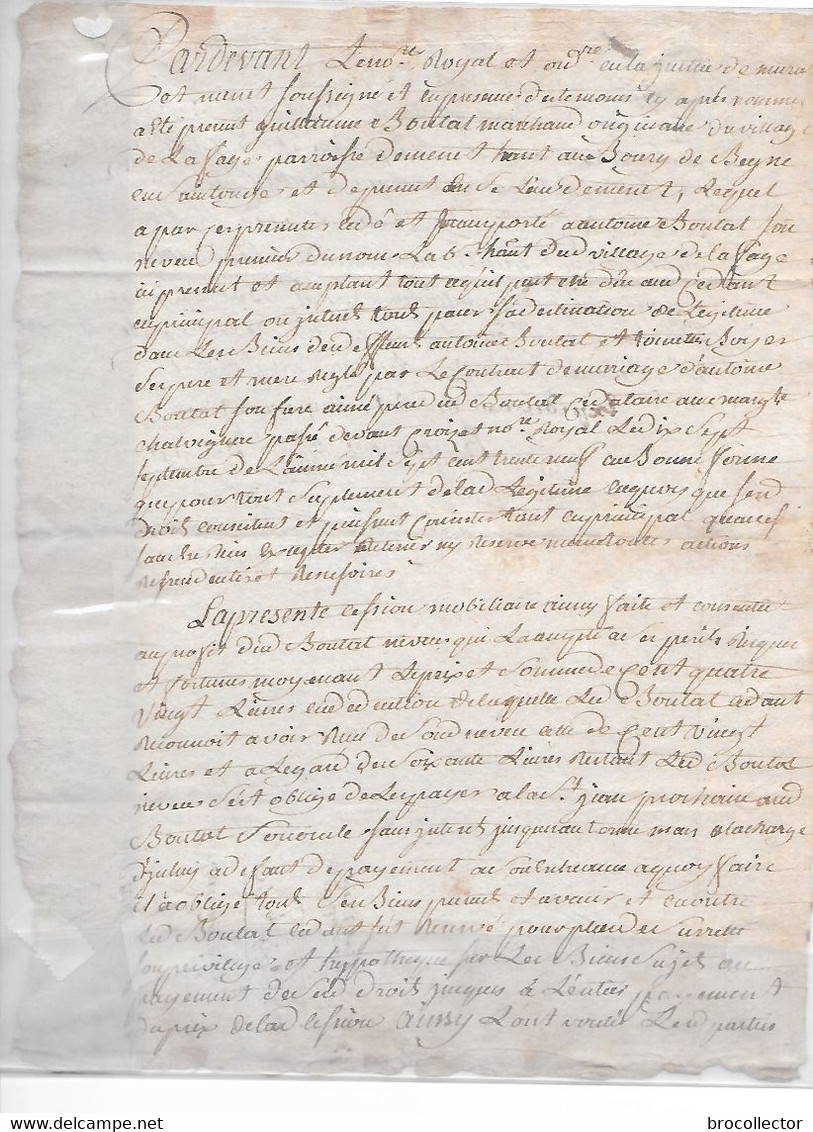 Pardevant Le no.re Royal et ord.re en la justice de mura
et
soussigné et en presence des temoins cy apres nommes
a été present guillaume Boutal marchand originaire du village
de La fage parroisse de menet hant au Bourg de Beyne
en et de present en Lequel
a par ses presentes cedé et transporté a antoine Boutal son
neveu premier du nom Lab.r hant dud village de La fage
icy present et acceptant tout ce qui peut etre dû aud cedant
en principal ou interet pour sa destination de Legitime
dans Les Biens de deffunt antoine Boutal et Boyer
ses pere et mere reglé par Le contract de mariage d'antoine
Boutal son frere ainé pere dud Boutal avec marg.te
chalvignac passé devant no.re Royal Le dix sept
septembre de L'année mil sept cent trente neuf en Bonne forme
que pour tout suplement de lad Legitime en quoy que sesd
droits consistent et puissent consister tant en principal
sans en rien excepter retenir ny reserve toutes actions
et
La presente cession mobiliaire ainsy faite et consentie
au profit dud Boutal neveu qui L'accepte a ses perils risques
et fortunes moyenant Le prix et somme de cent quatre
vingt Livres en deduction de laquelle Led Boutal cedant
reconnoit avoir reçu de sond neveu celle de cent vingt
Livres et a L'egard des soixante Livres restant Led Boutal
neveu s'est obligé de Les payer a la S.t jean prochain aud
Boutal son oncle sans interet jusqu'au terme mais a la charge
d'iceluy a defaut de payement a quoy faire
il a obligé tous ses Biens presents et avenir et en outre
Led Boutal cedant s'est reservé pour plus de surreté
son privilege et hypotheque sur Les Biens sujets au
payement de sesd droits jusques à L'entier payement
du prix de lad cession ainsy L'ont voulu Lesd parties
brocollector